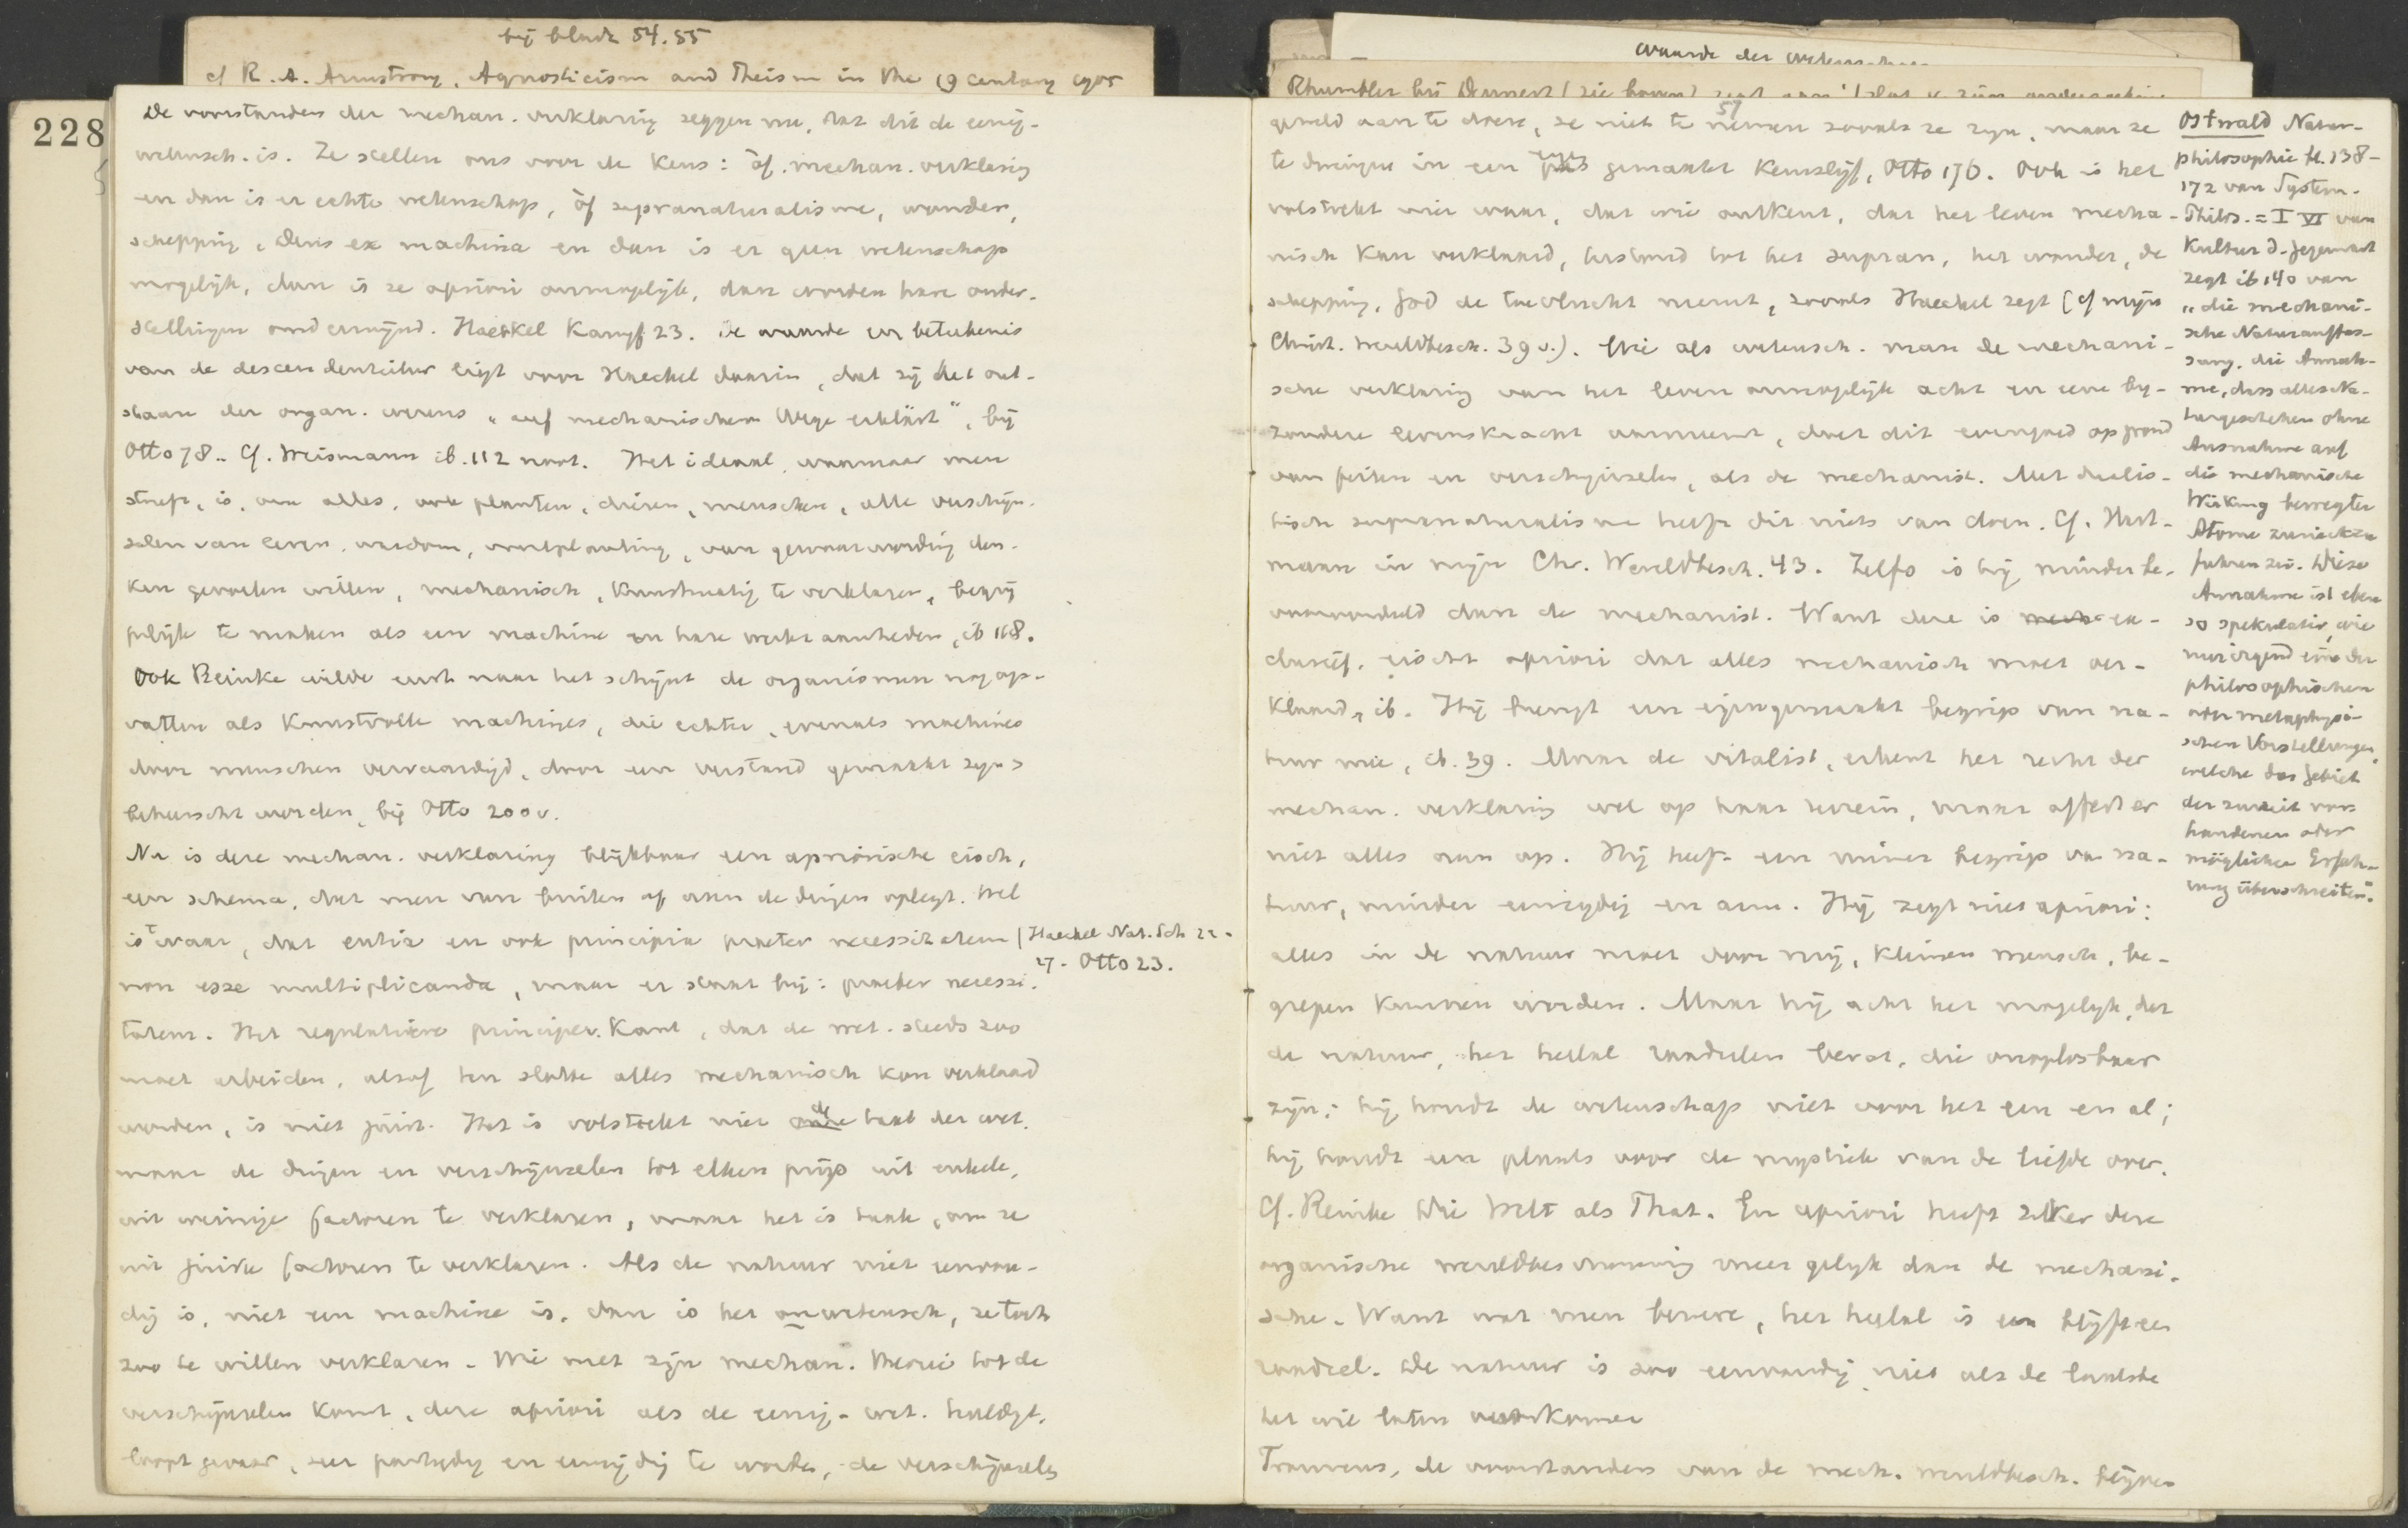 bij bladz 54.55
cf R. A. Armstrong, Agnosticism and Theism in the 19 century 1905
228
De voorstanders der mechan. verklaring zeggen nu, dat dit de eenig-
wetensch. is. Ze stellen ons voor de keus: òf mechan. verklaring
en dan is er echte wetenschap, òf supranaturalisme, wonder,
schepping, Deus ex machina en dan is er geen wetenschap
mogelijk, dan is ze apriori onmogelijk, dan worden hare onder-
stellingen ondermijnd. Haeckel Kampf 23. De waarde en beteekenis
van de descendentieleer ligt voor Haeckel daarin, dat zij het ont-
staan der organ. wezens „auf mechanischem Wege erklärt", bij
Otto 78.. Cf. Weismann ib. 112 noot. Het ideaal, waarnaar men
streeft, is, om alles, ook planten, dieren, menschen, alle verschijn-
selen van leven, wasdom, voortplanting, van gewaarwording den-
ken gevoelen willen, mechanisch, kunstmatig te verklaren, begrij
pelijk te maken als een machine en hare werkzaamheden, ib 168.
Ook Reinke wilde eerst naar het schijnt de organismen nog op-
vatten als kunstvolle machines, die echter, evenals machines
door menschen vervaardigd, door een verstand gemaakt zijn &
beheerscht worden, bij Otto 200 v.
Nu is deze mechan. verklaring blijkbaar een apriorische eisch,
een schema, dat men van buiten af aan de dingen oplegt. Wel
is 't waar, dat entia en ook principia praeter necessitatem | Haeckel Nat. Sch 22-
27 - Otto 23.
non esse multiplicanda, maar er staat bij: praeter necessi-
tatem. Het regulatieve principe v. Kant, dat de wet. steeds zoo
moet arbeiden, alsof ten slotte alles mechanisch kon verklaard
worden, is niet juist. Het is volstrekt niet de taak der wet.
maar de dingen en verschijnselen tot elken prijs uit enkele,
uit weinige factoren te verklaren, maar het is taak, om ze
uit juiste factoren te verklaren. Als de natuur niet eenvou-
dig is, niet een machine is, dan is het onwetensch., ze toch
zoo te willen verklaren. Wie met zijn mechan. theorie tot de
verschijnselen komt, deze apriori als de eenig-wet. huldigt,
loopt gevaar, zeer partijdig en eenzijdig te worden, de verschijnselen
waarde der wetenschap
57
geweld aan te doen, ze niet te nemen zooals ze zijn, maar ze
te dwingen in een eigen gemaakt keurslijf, Otto 176. Ook is het
volstrekt niet waar, dat wie ontkent, dat het leven mecha-
nisch kan verklaard, terstond tot het supran., het wonder, de
schepping, God de toevlucht neemt, zooals Haeckel zegt (cf mijn
Christ. Wereldbesch. 39 v.). Wie als wetensch. man de mechani-
sche verklaring van het leven onmogelijk acht en eene bij-
zondere levenskracht aanneemt, doet dit evengoed op grond
van feiten en verschijnselen, als de mechanist. Met dualis-
tisch supranaturalisme heeft dit niets van doen. Cf. Hart-
mann in mijn Chr. Wereldbesch. 43. Zelfs is hij minder be-
vooroordeeld dan de mechanist. Want deze is ex-
clusief, eischt apriori dat alles mechanisch moet ver-
klaard, ib. Hij brengt een eigengemaakt begrip van na-
tuur mee, ib. 39. Maar de vitalist, erkent het recht der
mechan. verklaring wel op haar terrein, maar offert er
niet alles aan op. Hij heeft een ruimer begrip van na-
tuur, minder eenzijdig en arm. Hij zegt niet apriori:
alles in de natuur moet door mij, kleinen mensch, be-
grepen kunnen worden. Maar hij acht het mogelijk, dat
de natuur, het heelal raadselen bevat, die onoplosbaar
zijn; hij houdt de wetenschap niet voor het een en al;
hij houdt een plaats voor de mystiek van de liefde over.
Cf. Reinke Die Welt als That. En apriori heeft zeker deze
organische wereldbeschouwing meer gelijk dan de mechani-
sche. Want wat men bewere, het heelal is en blijft een
raadsel. De natuur is zoo eenvoudig niet als de laatste
het wil laten voorkomen
Trouwens, de voorstanders van de mech. wereldbesch. blijven
Ostwald Natur-
philosophie bl. 138-
172 van System.
Philos. = I VI van
Kultur d. Gegenwart
zegt ib 140 van
„die mechani-
sche Naturauffas-
sung, die Annah-
me, dass alles Na-
turgeschehen ohne
Ausnahme auf
die mechanische
Wirkung bewegter
Atome zurückzu
führen sei. Diese
Annahme ist eben
so spekulativ, wie
nur irgend eine der
philosophischen
oder metaphysi-
schen Vorstellungen,
welche das Gebiet
der zurzeit vor-
handenen oder
möglichen Erfah-
rung überschreiten."